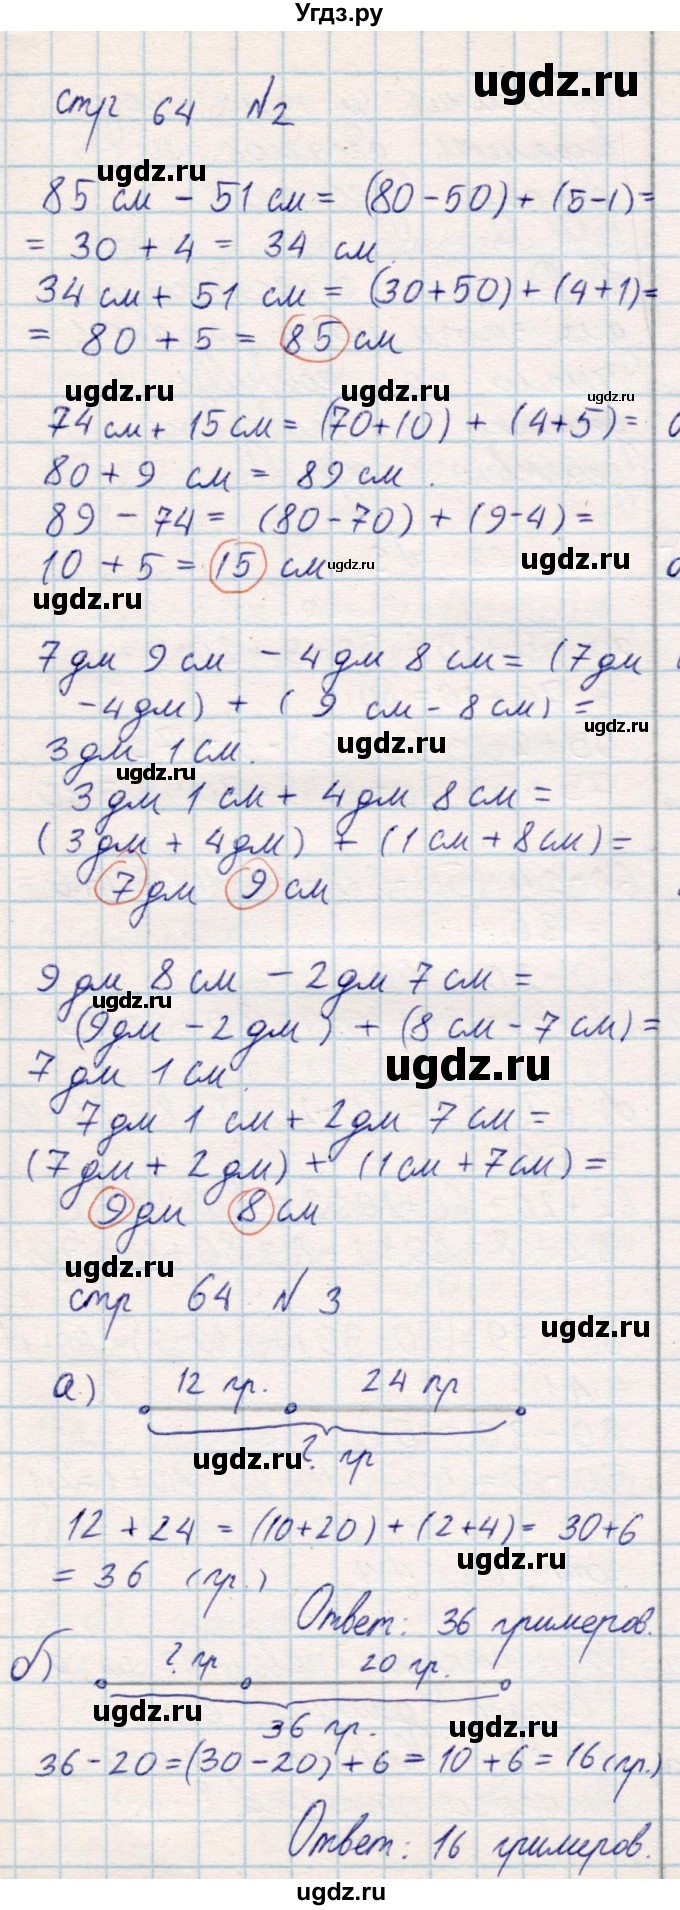 Угдз.ру
ugdz.ru
стр 64 №2
ugdz.ru
85 см - 51 см = (80-50) + (5-1) =
= 30 + 4 = 34 см.
34 см + 51 см = (30+50) + (4+1) =
= 80 + 5 = 85 см
ugdz.ru ugdz.ru ugdz.ru
74 см + 15 см = (70+10) + (4+5) =
80 + 9 см = 89 см.
89 - 74 = (80-70) + (9-4) =
10 + 5 = 15 см
ugdz.ru ugdz.ru
ugdz.ru
7 дм 9 см - 4 дм 8 см = (7 дм
-4 дм) + (9 см - 8 см) =
ugdz.ru
ugdz.ru
3 дм 1 см.
ugdz.ru
3 дм 1 см + 4 дм 8 см =
(3 дм + 4 дм) + (1 см + 8 см) =
7 дм 9 см
9 дм 8 см - 2 дм 7 см =
ugdz.ru
(9 дм - 2 дм) + (8 см - 7 см) =
ugdz.ru
7 дм 1 см.
7 дм 1 см + 2 дм 7 см =
(7 дм + 2 дм) + (1 см + 7 см) =
9 дм 8 см
ugdz.ru
стр 64 № 3
ugdz.ru
а) 12 гр. 24 гр
ugdz.ru
? гр
12 + 24 = (10+20) + (2+4) = 30+6
ugdz.ru
= 36 (гр.)
Ответ: 36 гримеров.
б) ? гр 20 гр.
ugdz.ru
ugdz.ru
36 гр.
36 - 20 = (30 - 20) + 6 = 10 + 6 = 16 (гр.)
Ответ: 16 гримеров.
ugdz.ru